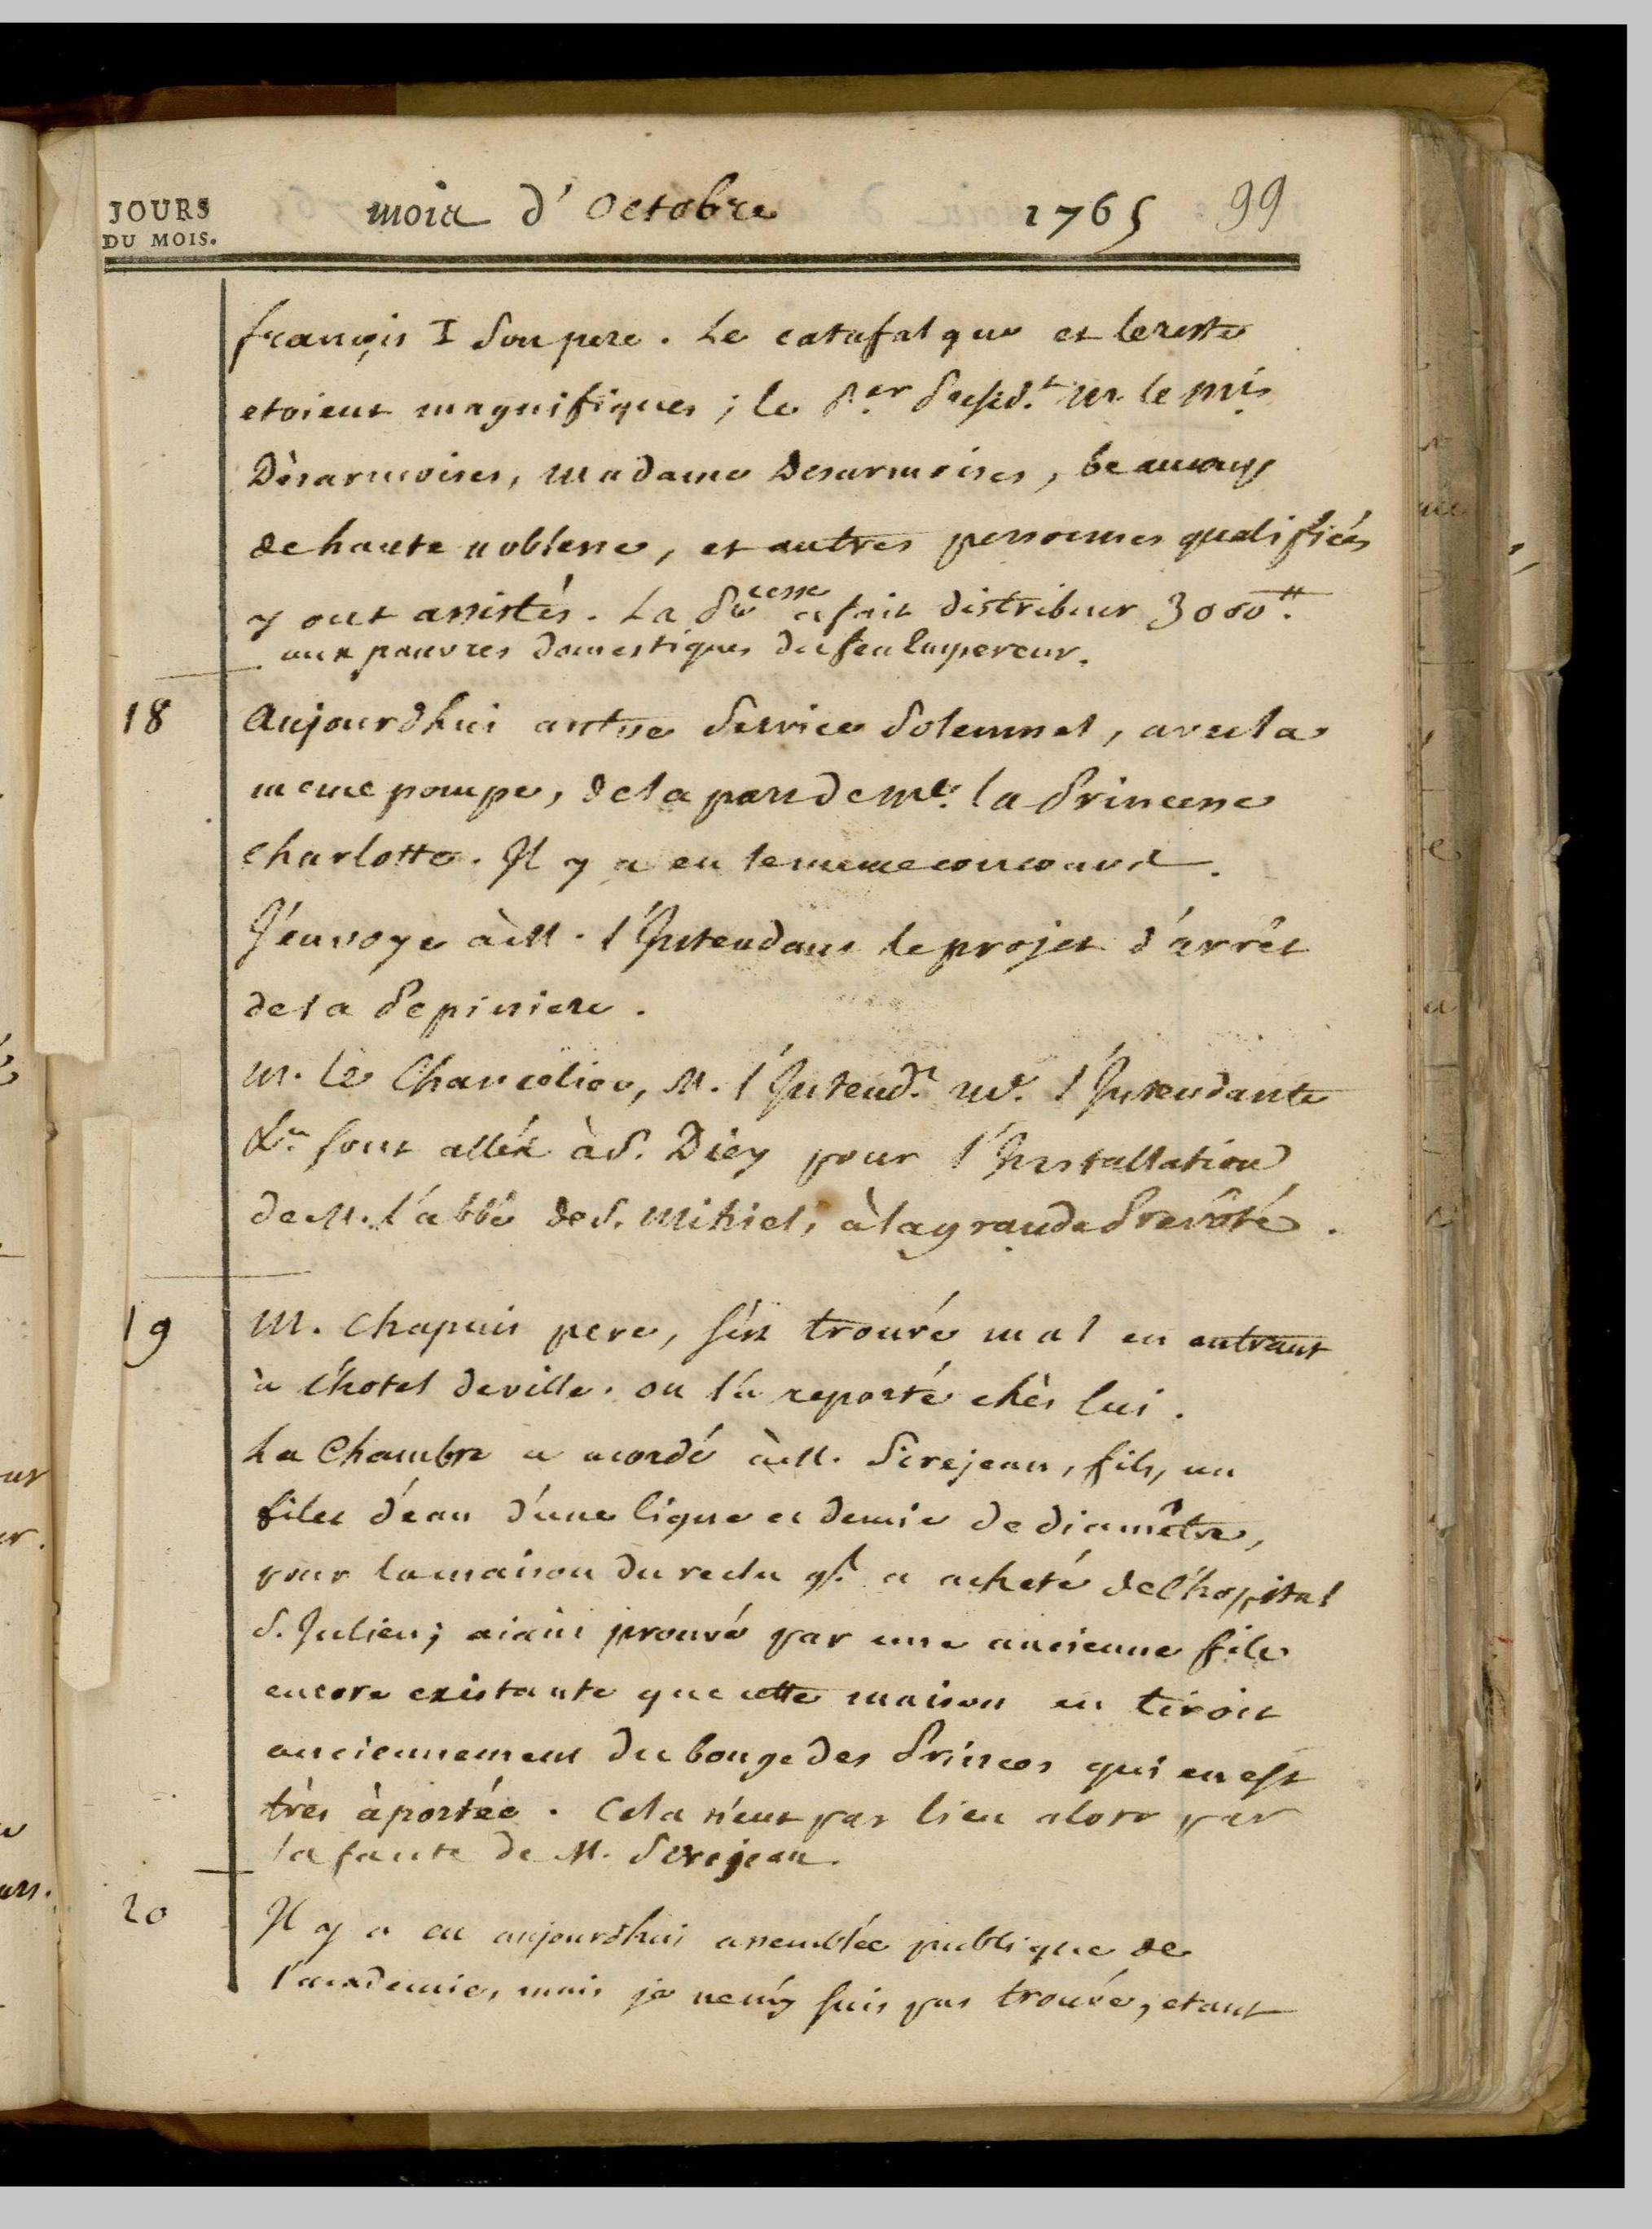 JOURS
DU MOIS.
mois d'Octobre 1765 99
françois I son pere. Le catafalque et le reste
etoient magnifiques; le P.er Presid.t M. le M.is
Dèsarmoises, madame Desarmoises, beaucoup
de haute noblesse, et autres personnes qualifiées
y ont assistés. La P.cesse a fait distribuer 3000 ₶.
aux pauvres domestiques du feu Empereur.
18 Aujourdhui autre Service Solemnel, avec la
meme pompe, de la part de Me. la Princesse
charlotte. Il y a eu le meme concours.
J'envoye à M. l'Intendant le projet d'arrêt
de la Pepiniere.
M. le Chancelier, M. l'Intend.t Me. l'Intendante
&a. sont allés à S. Diey pour l'Installation
de M. l'abbé de S. Mihiel, à la grande Prevôté.
19 M. chapuis pere, s'est trouvé mal en entrant
à l'hotel de ville. on l'a reporté chès lui.
La Chambre a acordé à M. Sirejean, fils, un
filet d'eau d'une ligne et demie de diamêtre,
pour la maison du reclu qu'il a acheté de l'hopital
S. Julien; aiant prouvé par une ancienne file
encore existante que cette maison en tiroit
anciennement du bouge des Princes qui en est
très à portée. Cela n'eut pas lieu alors par
la faute de M. Sirejean.
20 Il y a eu aujourdhui assemblée publique de
l'academie, mais je ne m'y suis pas trouvé, etant